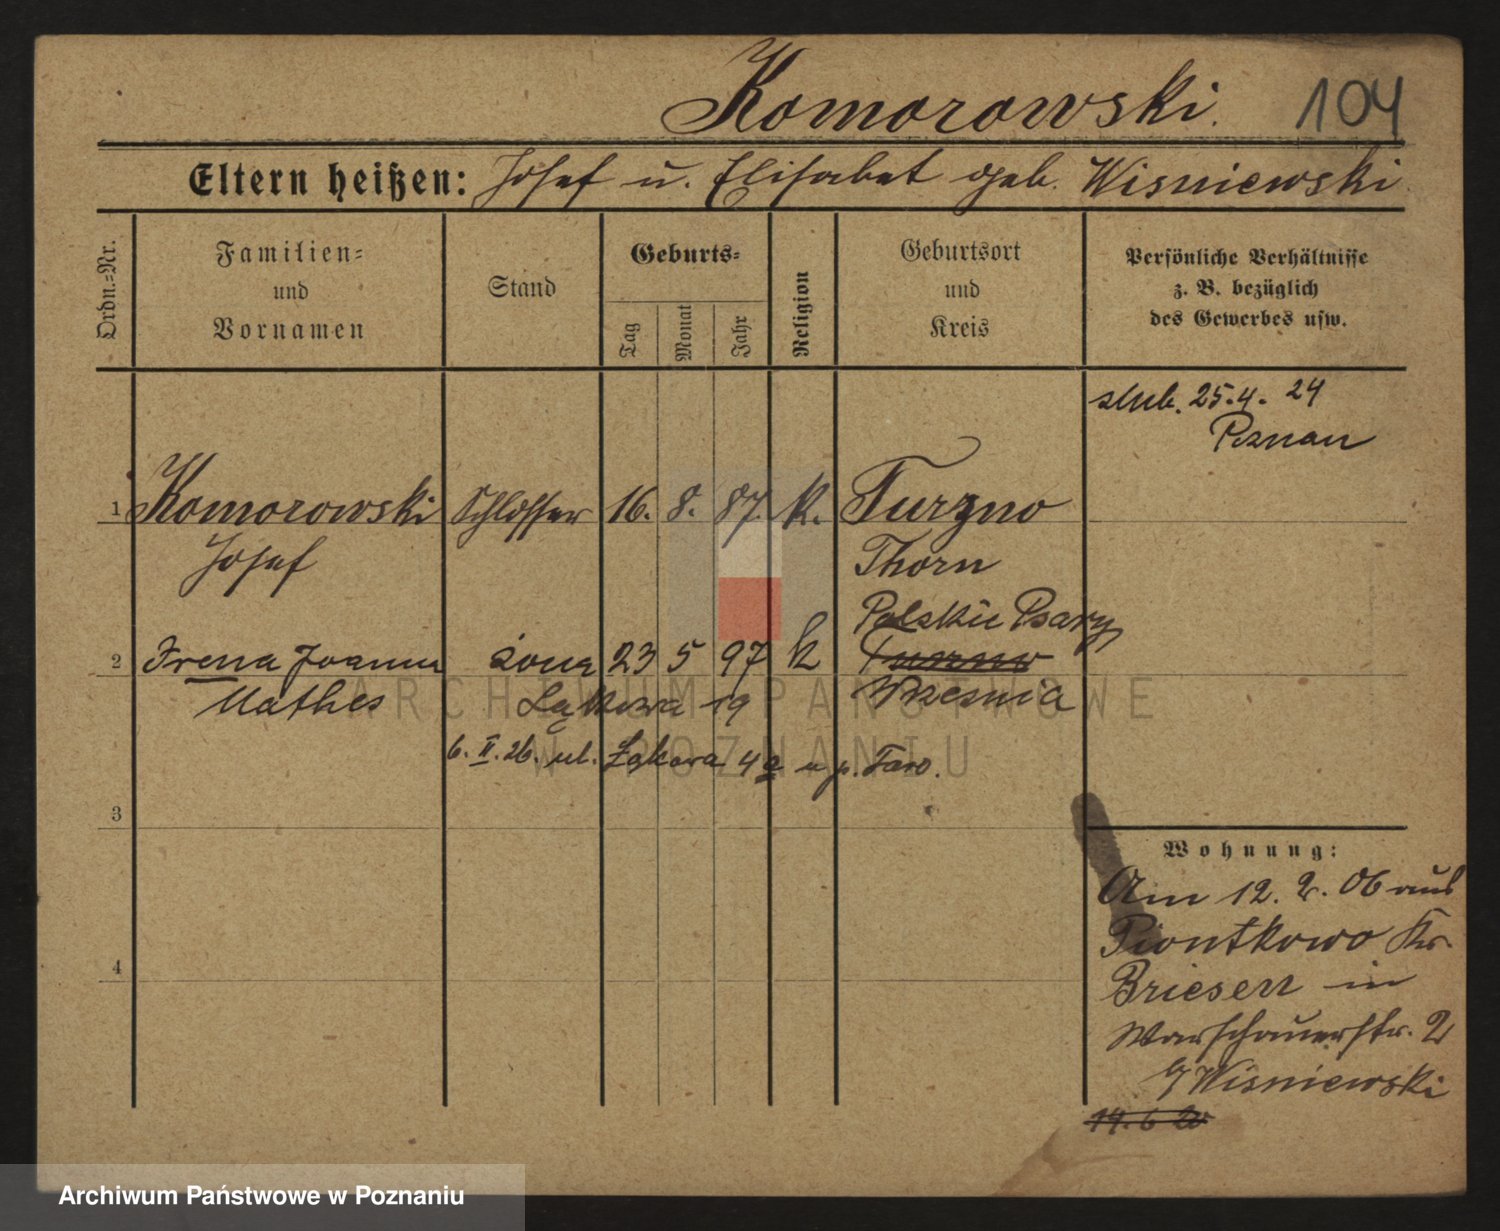 Komorowski. 104
Eltern heißen: Josef u. Elisabet geb. Wisniewski.
Ordn.=Nr.
Familien=
und
Vornamen
Stand
Geburts=
Tag
Monat
Jahr
Religion
Geburtsort
und
Kreis
Persönliche Verhältnisse
z. B. bezüglich
des Gewerbes usw.
slub. 25.4. 24
Poznan
1 Komorowski Schlosser 16. 8. 87. k. Turzno
Josef Thorn
Polskie Psary
2 Irena Joanna żona 23 5 97 k
Mathes Łąkowa 19 Wrzesnia
6. II. 26. ul. Łąkowa 4a u p.
3
4
Wohnung:
Am 12. 2. 06 aus
Piontkowo Kr.
Briesen in
Warschauerstr. 2
b/ Wisniewski
14.6
ARCHIWUM PAŃSTWOWE
W POZNANIU
Archiwum Państwowe w Poznaniu